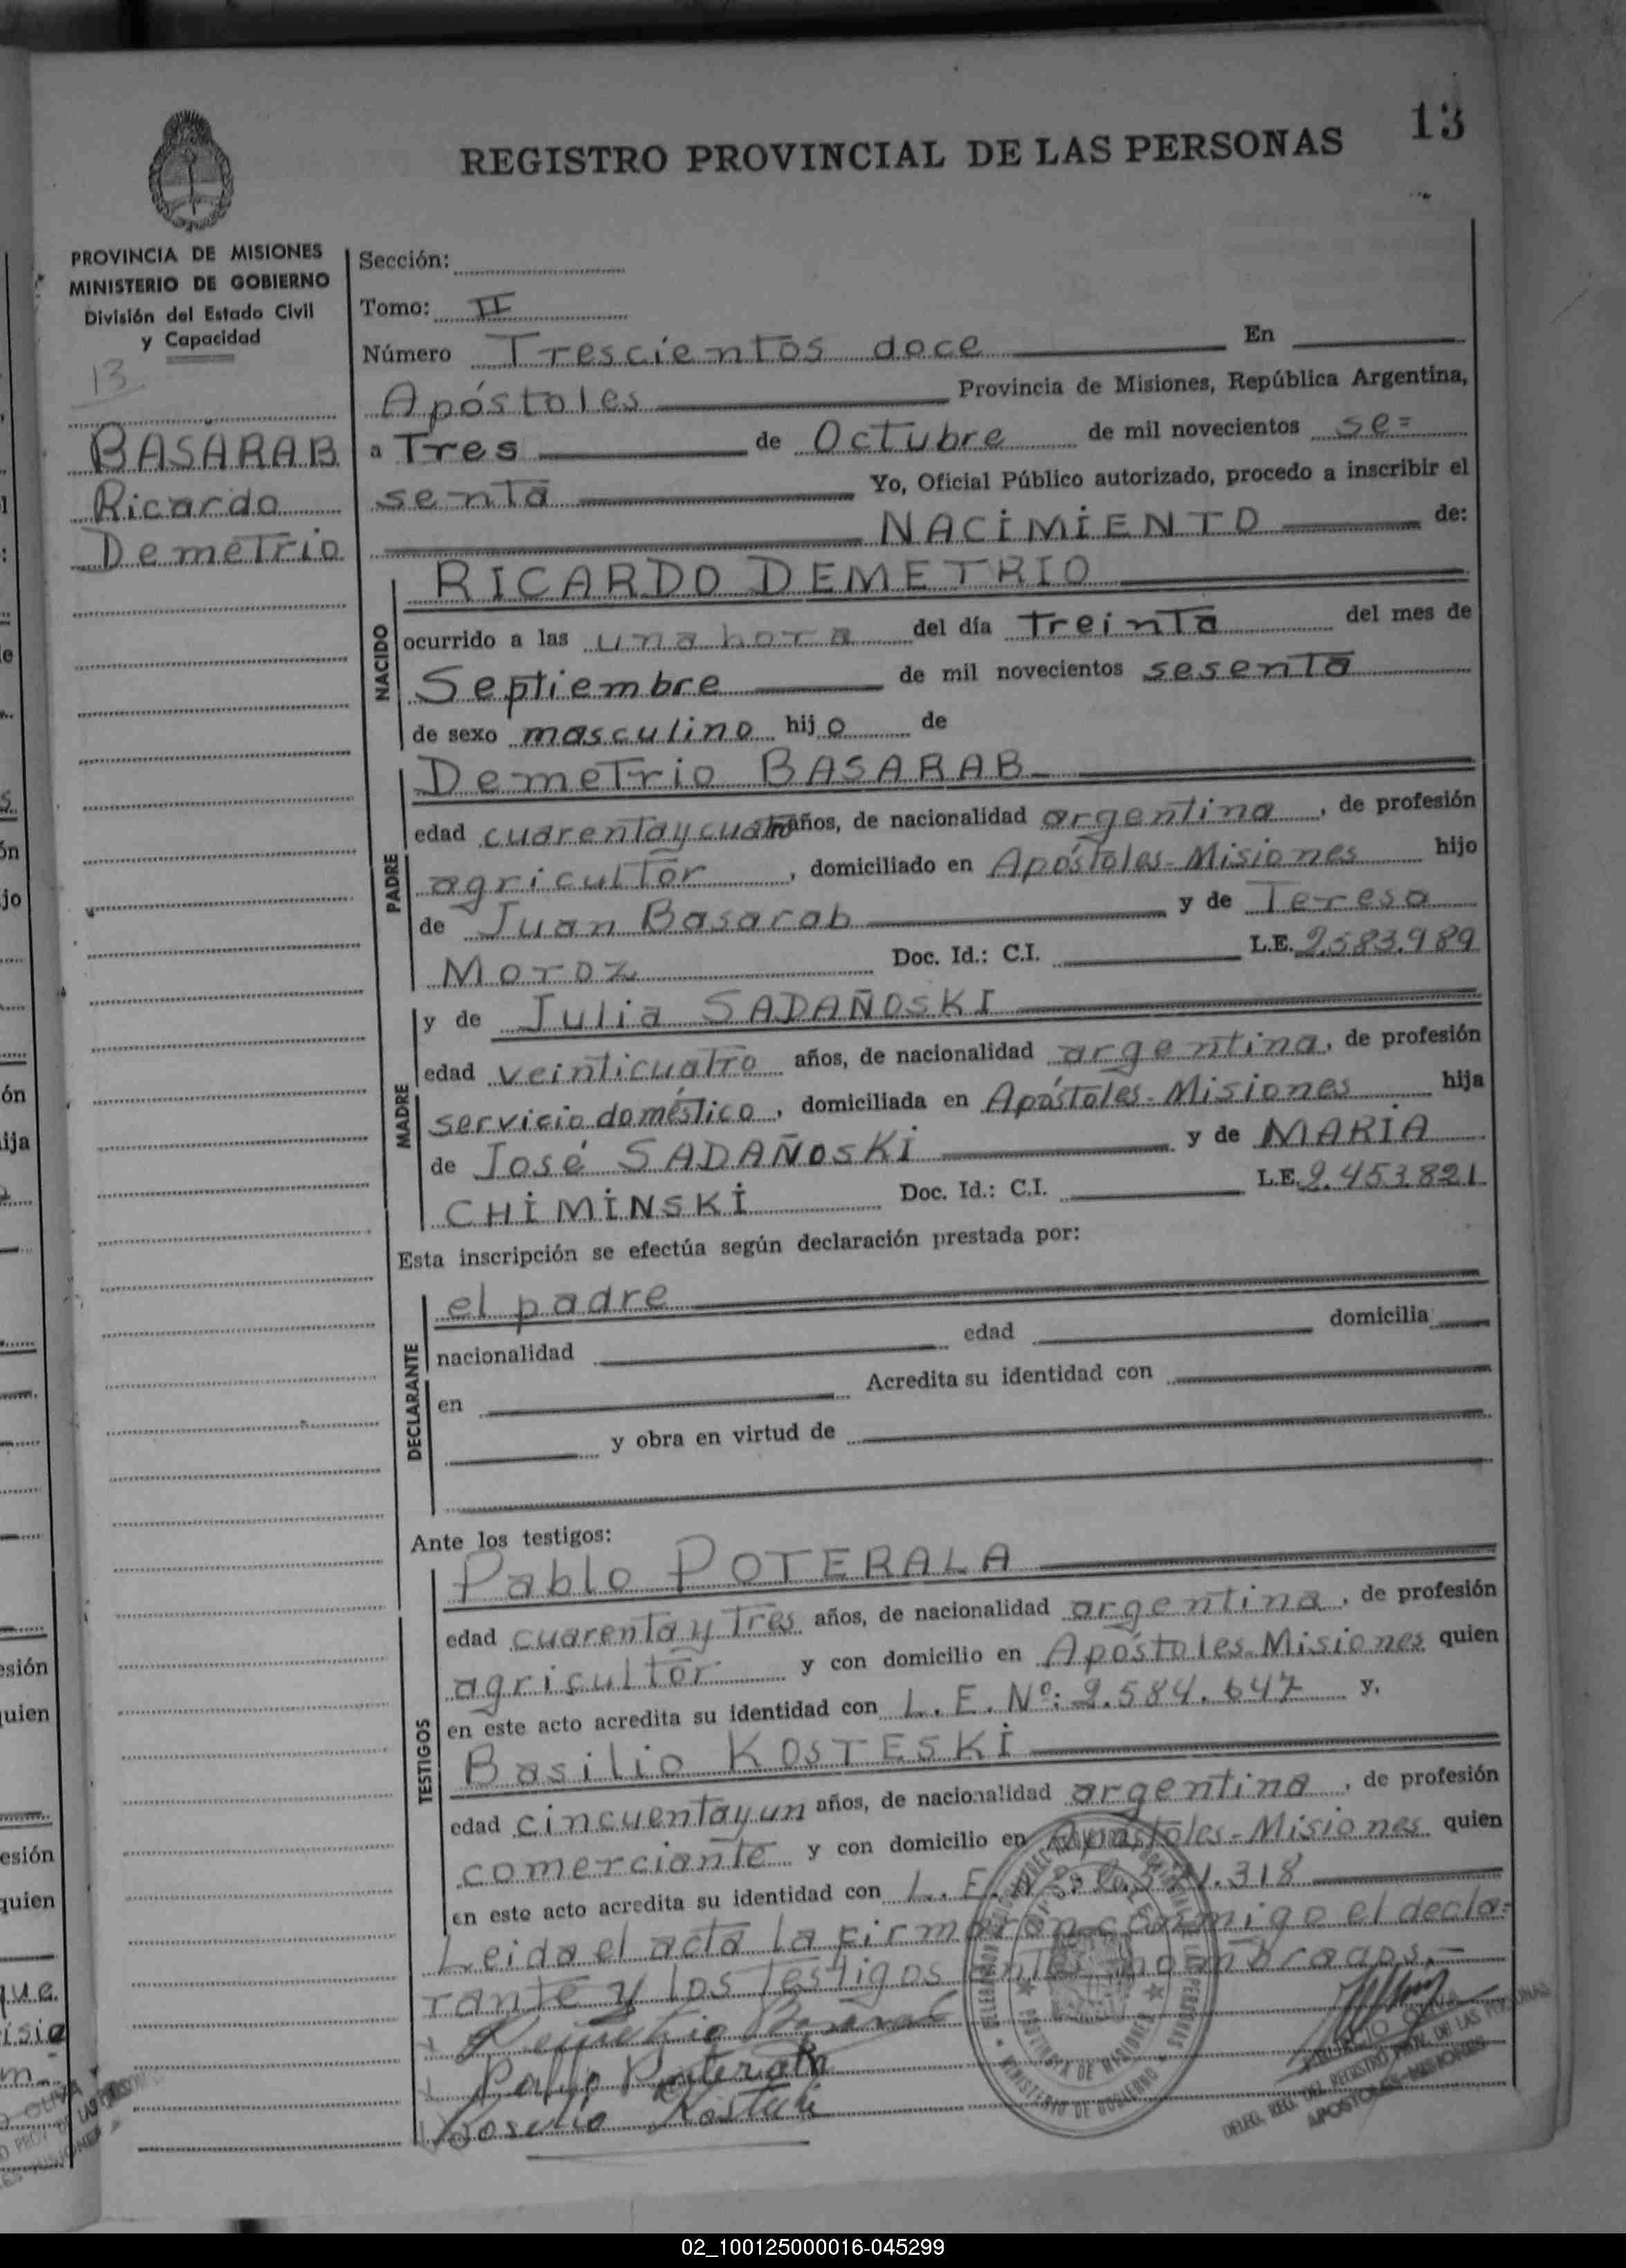 13
REGISTRO PROVINCIAL DE LAS PERSONAS
PROVINCIA DE MISIONES
MINISTERIO DE GOBIERNO
División del Estado Civil
y Capacidad
13
BASARAB
Ricardo
Demetrio
Sección:
Tomo: II
Número Trescientos doce En
Apóstoles Provincia de Misiones, República Argentina,
a Tres de Octubre de mil novecientos se=
senta Yo, Oficial Público autorizado, procedo a inscribir el
NACIMIENTO de:
NACIDO
RICARDO DEMETRIO
ocurrido a las una hora del día treinta del mes de
Septiembre de mil novecientos sesenta
de sexo masculino hijo de
PADRE
Demetrio BASARAB
edad cuarenta y cuatro años, de nacionalidad argentina, de profesión
agricultor, domiciliado en Apóstoles-Misiones hijo
de Juan Basarab y de Teresa
Moroz Doc. Id.: C.I. L.E. 2.583.989
MADRE
y de Julia SADAÑOSKI
edad veinticuatro años, de nacionalidad argentina, de profesión
servicio doméstico, domiciliada en Apóstoles-Misiones hija
de José SADAÑOSKI y de MARIA
CHIMINSKI Doc. Id.: C.I. L.E. 2.453.821
Esta inscripción se efectúa según declaración prestada por:
DECLARANTE
el padre
nacionalidad edad domicilia
en Acredita su identidad con
y obra en virtud de
Ante los testigos:
TESTIGOS
Pablo POTERALA
edad cuarenta y tres años, de nacionalidad argentina, de profesión
agricultor y con domicilio en Apóstoles-Misiones quien
en este acto acredita su identidad con L.E. Nº: 2.584.647 y,
Basilio KOSTESKI
edad cincuenta y un años, de nacionalidad argentina, de profesión
comerciante y con domicilio en Apóstoles-Misiones quien
en este acto acredita su identidad con L.E. .318
Leida el acta la firmaron conmigo el decla=
rante y los testigos antes nombrados.-
Demetrio Basarab
Pablo Poterala
Basilio Kosteski
PROVINCIA DE MISIONES
MINISTERIO DE GOBIERNO
DELEG. REG. DEL REGISTRO PROV. DE LAS PERSONAS
APOSTOLES-MISIONES
02_100125000016-045299